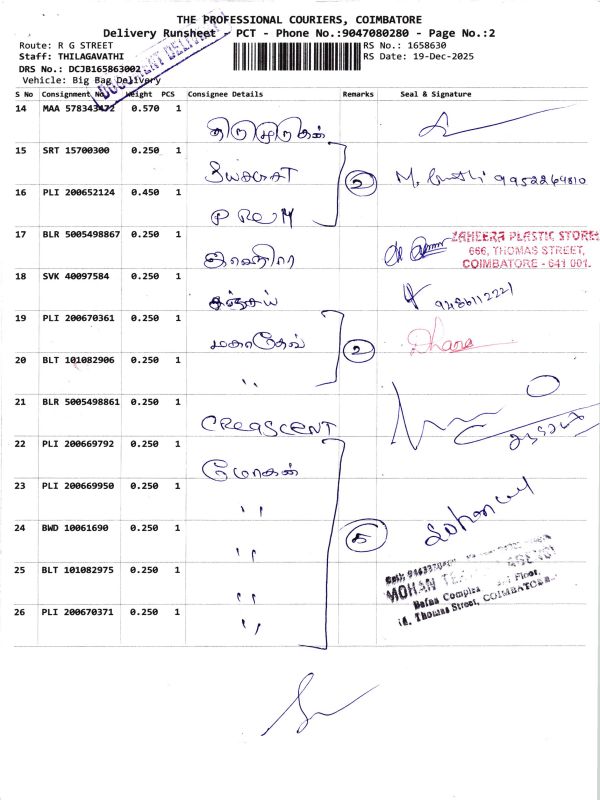 THE PROFESSIONAL COURIERS, COIMBATORE
Delivery Runsheet - PCT - Phone No.:9047080280 - Page No.:2
Route: R G STREET
RS No.: 1658630
Staff: THILAGAVATHI
RS Date: 19-Dec-2025
DRS No.: DCJB165863002
Vehicle: Big Bag Delivery
DOCUMENT DELIVERY
S No Consignment No. Weight PCS Consignee Details Remarks Seal & Signature
14 MAA 578343472 0.570 1
15 SRT 15700300 0.250 1
2 9952264810
16 PLI 200652124 0.450 1 PREM
17 BLR 5005498867 0.250 1 இந்திரா
ZAHEERA PLASTIC STORES
666, THOMAS STREET,
COIMBATORE - 641 001.
18 SVK 40097584 0.250 1 சஞ்சய் 9486112221
19 PLI 200670361 0.250 1 மகாதேவ் 2 Dhana
20 BLT 101082906 0.250 1 ''
21 BLR 5005498861 0.250 1 CREASCENT
22 PLI 200669792 0.250 1 மோகன்
23 PLI 200669950 0.250 1 ''
24 BWD 10061690 0.250 1 '' 5
25 BLT 101082975 0.250 1 ''
MOHAN
Thomas Street, COIMBATORE
26 PLI 200670371 0.250 1 ''